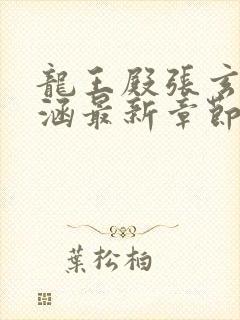 龍王殿張玄
涵最新章節
葉松柏